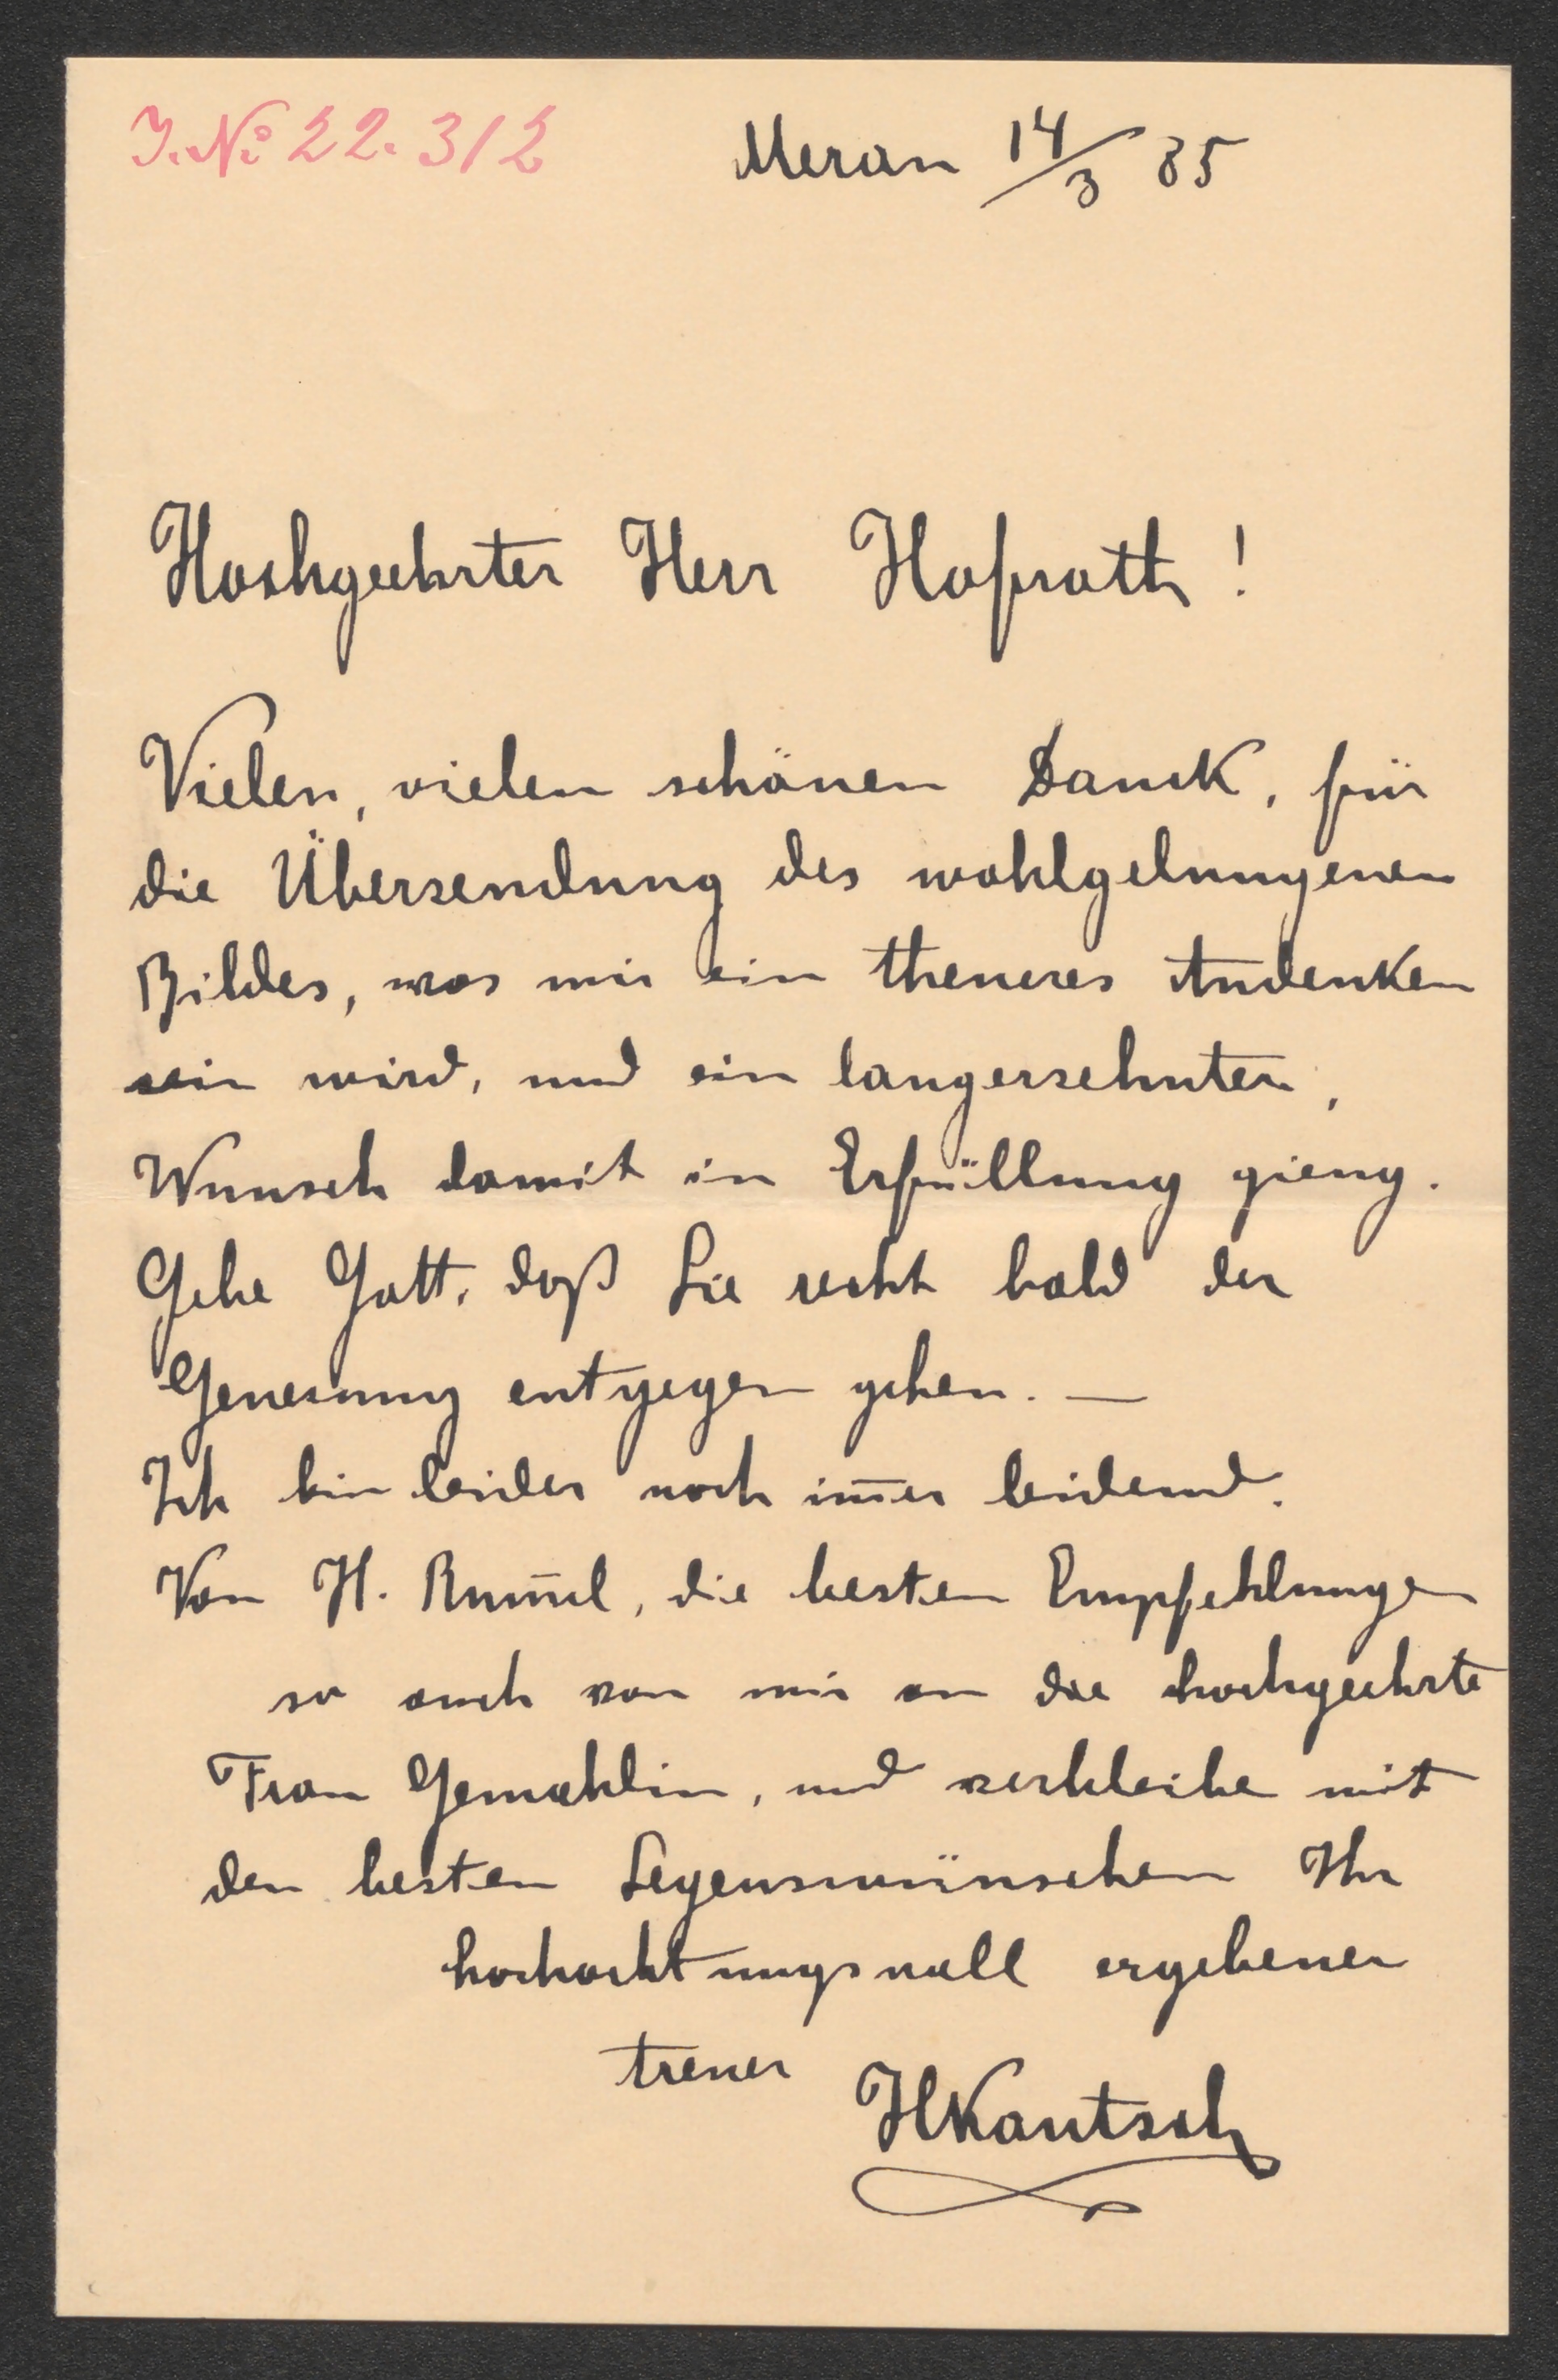 J. No 22.312
Meran 14/3 85
Hochgeehrter Herr Hofrath!
Vielen, vielen schönen Danck, für
die Übersendung des wohlgelungenen
Bildes, was mir ein theueres Andenken
sein wird, und ein langersehnter,
Wunsch damit in Erfüllung gieng.
Gebe Gott, daß Sie recht bald der
Genesung entgegen gehen. —
Ich bin leider noch im̅er leidend.
Von H. Rum̅el, die besten Empfehlungen
so auch von mir an die hochgeehrte
Frau Gemahlin, und verbleibe mit
den besten Segenswünschen Ihr
hochachtungsvoll ergebener
treuer HKantsch